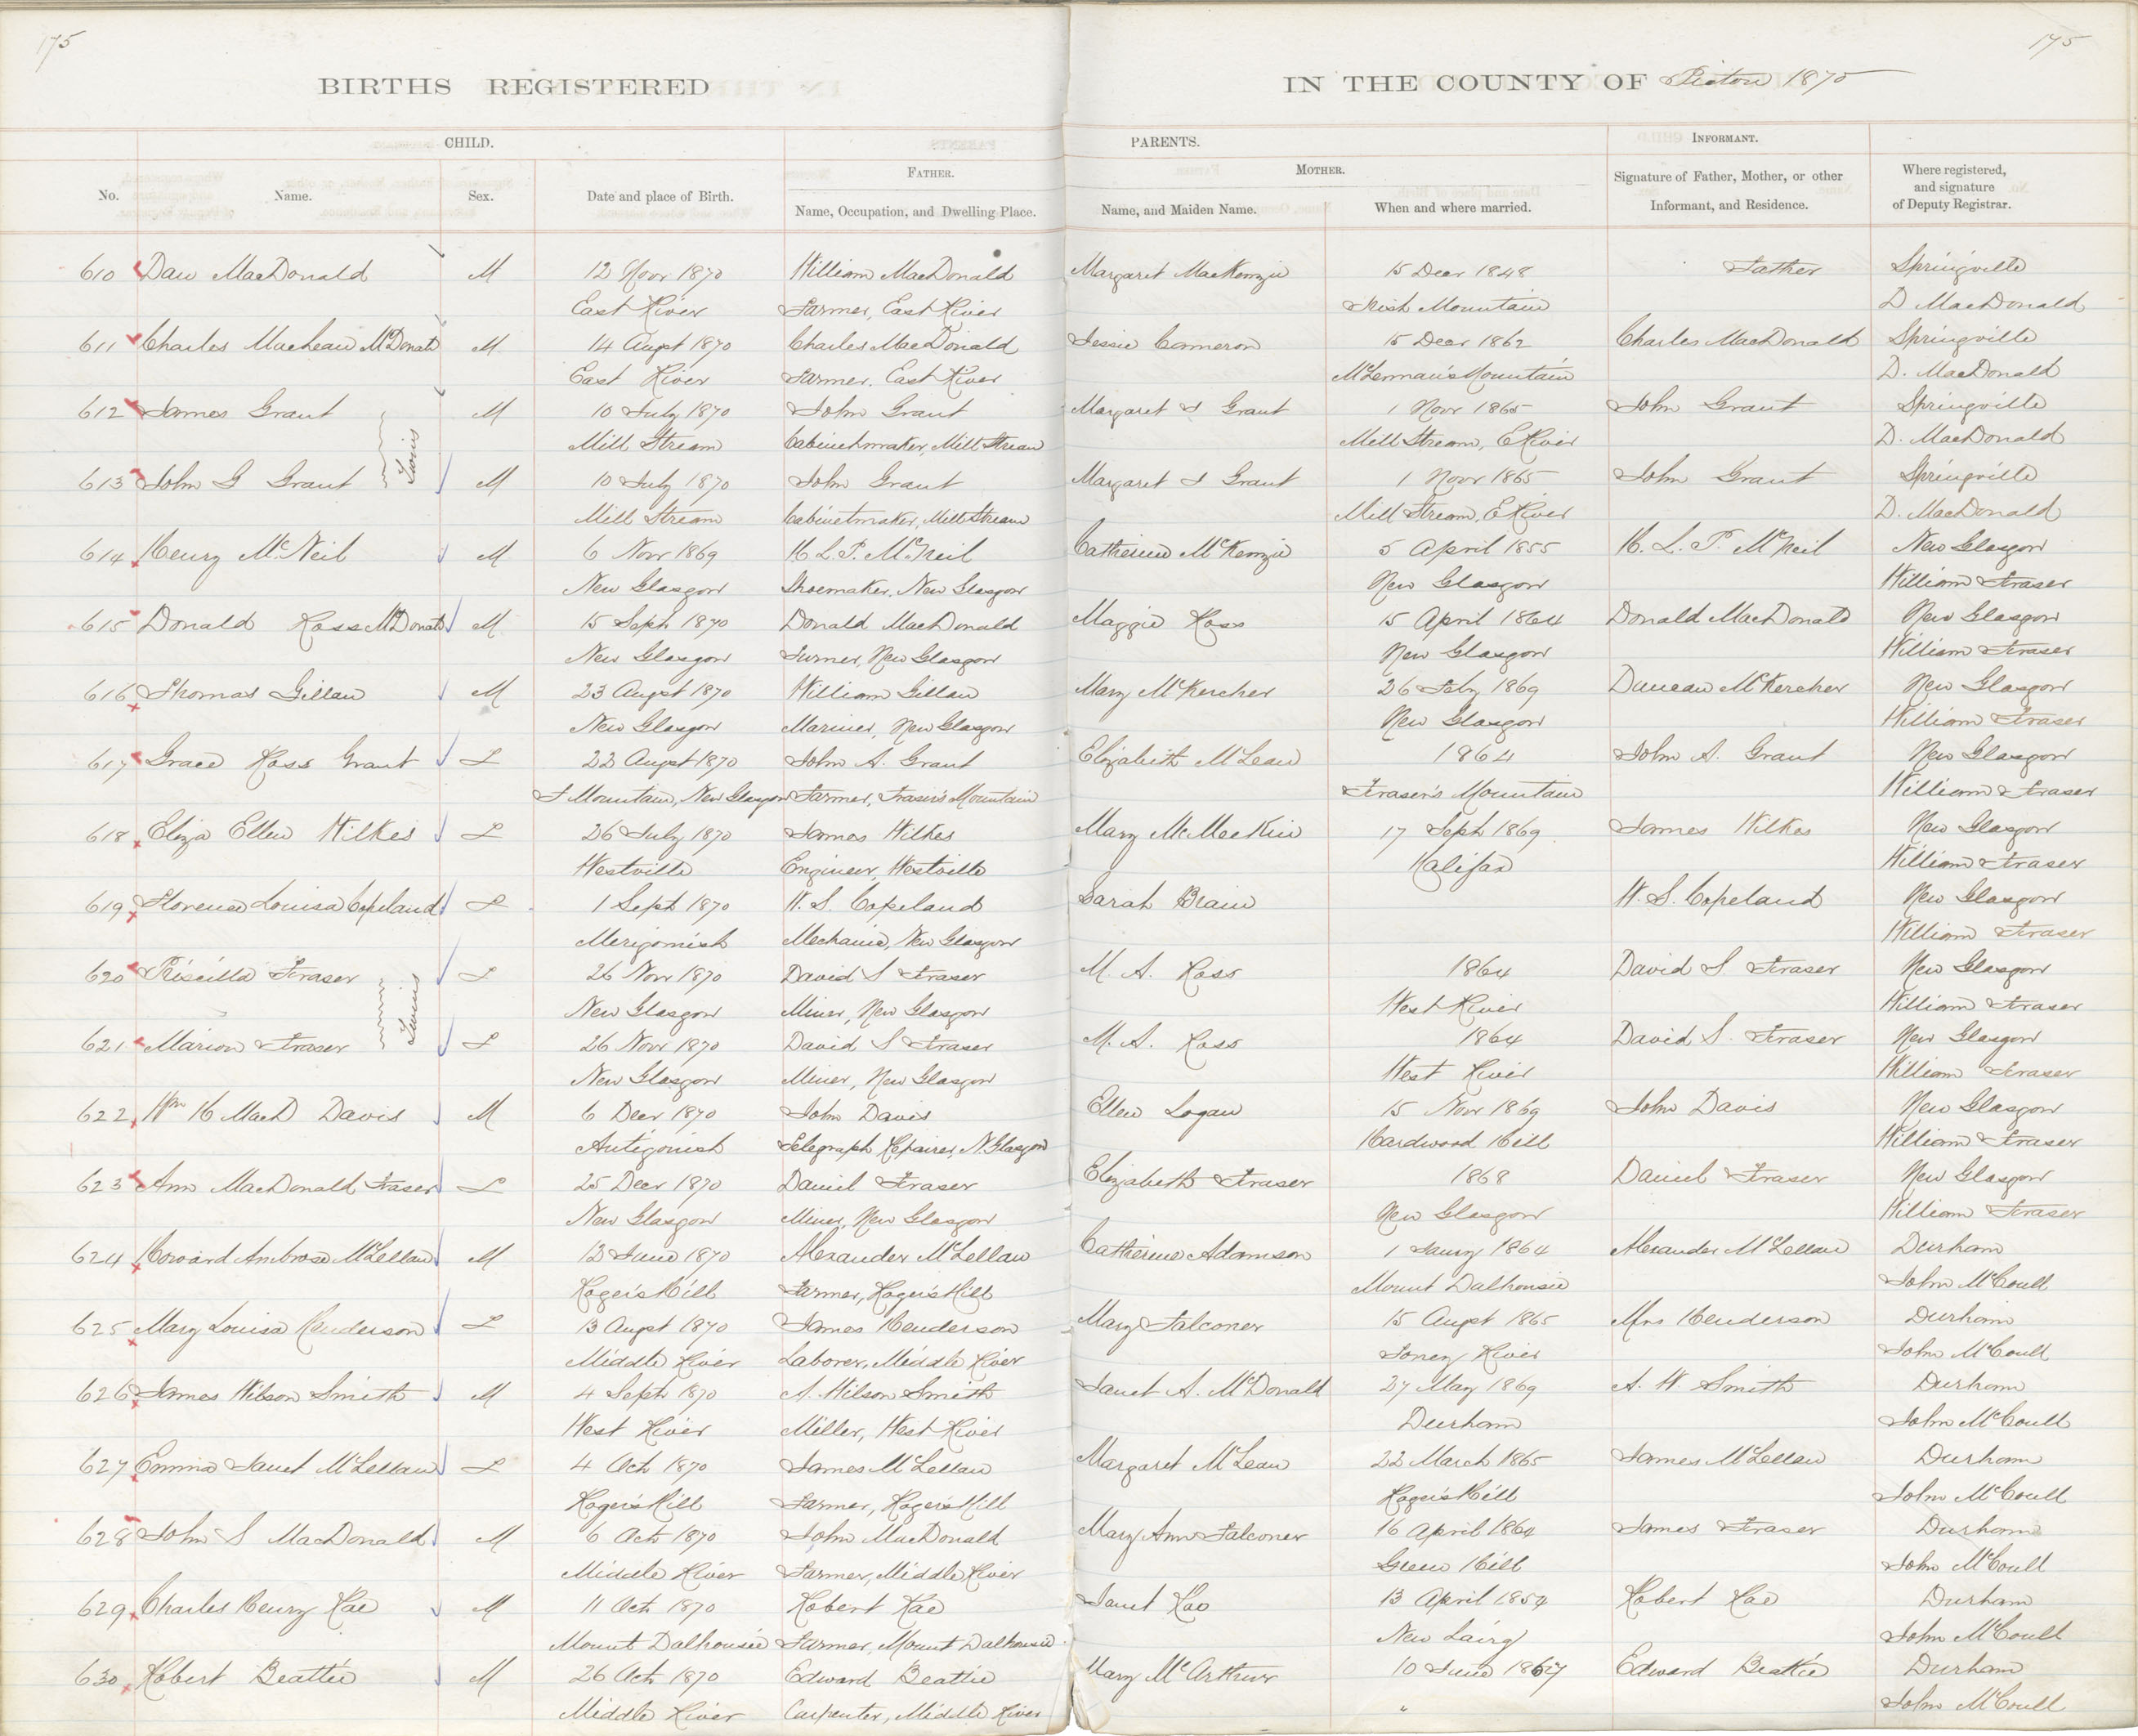 175
175
BIRTHS REGISTERED IN THE COUNTY OF Pictou 1870
CHILD. PARENTS. INFORMANT.
FATHER. MOTHER.
No. Name. Sex. Date and place of Birth. Name, Occupation, and Dwelling Place. Name, and Maiden Name. When and where married. Signature of Father, Mother, or other Informant, and Residence. Where registered, and signature of Deputy Registrar.
610 Dan MacDonald M 12 Novr 1870 William MacDonald Margaret MacKenzie 15 Decr 1848 Father Springville
East River Farmer, East River Irish Mountain D MacDonald
611 Charles MacLean McDonald M 14 Augst 1870 Charles MacDonald Jessie Cameron 15 Decr 1862 Charles MacDonald Springville
East River Farmer. East River McLennan's Mountain D. MacDonald
612 James Grant M 10 July 1870 John Grant Margaret J Grant 1 Novr 1865 John Grant Springville
Twins
Mill Stream Cabinetmaker, Mill Stream Mill Stream, E River D. MacDonald
613 John G Grant M 10 July 1870 John Grant Margaret J Grant 1 Novr 1865 John Grant Springville
Mill Stream Cabinetmaker, Mill Stream Mill Stream, E River D. MacDonald
614 Henry McNeil M 6 Novr 1869 H. L. P. McNeil Catherine McKenzie 5 April 1855 H. L. P. McNeil New Glasgow
New Glasgow Shoemaker, New Glasgow New Glasgow William Fraser
615 Donald Ross McDonald M 15 Sept 1870 Donald MacDonald Maggie Ross 15 April 1864 Donald MacDonald New Glasgow
New Glasgow Turner, New Glasgow New Glasgow William Fraser
616 Thomas Gillan M 23 Augst 1870 William Gillan Mary McKercher 26 Feby 1869 Duncan McKercher New Glasgow
New Glasgow Mariner, New Glasgow New Glasgow William Fraser
617 Grace Ross Grant F 22 Augst 1870 John A. Grant Elizabeth McLean 1864 John A. Grant New Glasgow
F Mountain, New Glasgow Farmer, Fraser's Mountain Fraser's Mountain William Fraser
618 Eliza Ellen Wilkes F 26 July 1870 James Wilkes Mary McMeekin 17 Sept 1869 James Wilkes New Glasgow
Westville Engineer, Westville Halifax William Fraser
619 Florence Louisa Copeland F 1 Sept 1870 W. S. Copeland Sarah Blain W. S. Copeland New Glasgow
Merigomish Mechanic, New Glasgow William Fraser
620 Priscilla Fraser F 26 Novr 1870 David S Fraser M. A. Ross 1864 David S Fraser New Glasgow
Twins
New Glasgow Miner, New Glasgow West River William Fraser
621 Marion Fraser F 26 Novr 1870 David S Fraser M. A. Ross 1864 David S. Fraser New Glasgow
New Glasgow Miner, New Glasgow West River William Fraser
622 Wm H MacD Davis M 6 Decr 1870 John Davis Ellen Logan 15 Novr 1869 John Davis New Glasgow
Antigonish Telegraph Repairer, N. Glasgow Hardwood Hill William Fraser
623 Ann MacDonald Fraser F 25 Decr 1870 Daniel Fraser Elizabeth Fraser 1868 Daniel Fraser New Glasgow
New Glasgow Miner, New Glasgow New Glasgow William Fraser
624 Howard Ambrose McLellan M 13 June 1870 Alexander McLellan Catherine Adamson 1 Jany 1864 Alexander McLellan Durham
Roger's Hill Farmer, Roger's Hill Mount Dalhousie John McCoull
625 Mary Louisa Henderson F 13 Augst 1870 James Henderson Mary Falconer 15 Augst 1865 Mrs Henderson Durham
Middle River Laborer, Middle River Toney River John McCoull
626 James Wilson Smith M 4 Sept 1870 A. Wilson Smith Janet A. McDonald 27 May 1869 A. W. Smith Durham
West River Miller, West River Durham John McCoull
627 Emma Janet McLellan F 4 Oct 1870 James McLellan Margaret McLean 22 March 1865 James McLellan Durham
Roger's Hill Farmer, Roger's Hill Roger's Hill John McCoull
628 John S MacDonald M 6 Oct 1870 John MacDonald Mary Ann Falconer 16 April 1864 James Fraser Durham
Middle River Farmer, Middle River Green Hill John McCoull
629 Charles Henry Rae M 11 Oct 1870 Robert Rae Janet Rae 13 April 1854 Robert Rae Durham
Mount Dalhousie Farmer, Mount Dalhousie New Lairg John McCoull
630 Robert Beattie M 26 Oct 1870 Edward Beattie Mary McArthur 10 June 1867 Edward Beattie Durham
Middle River Carpenter, Middle River " John McCoull